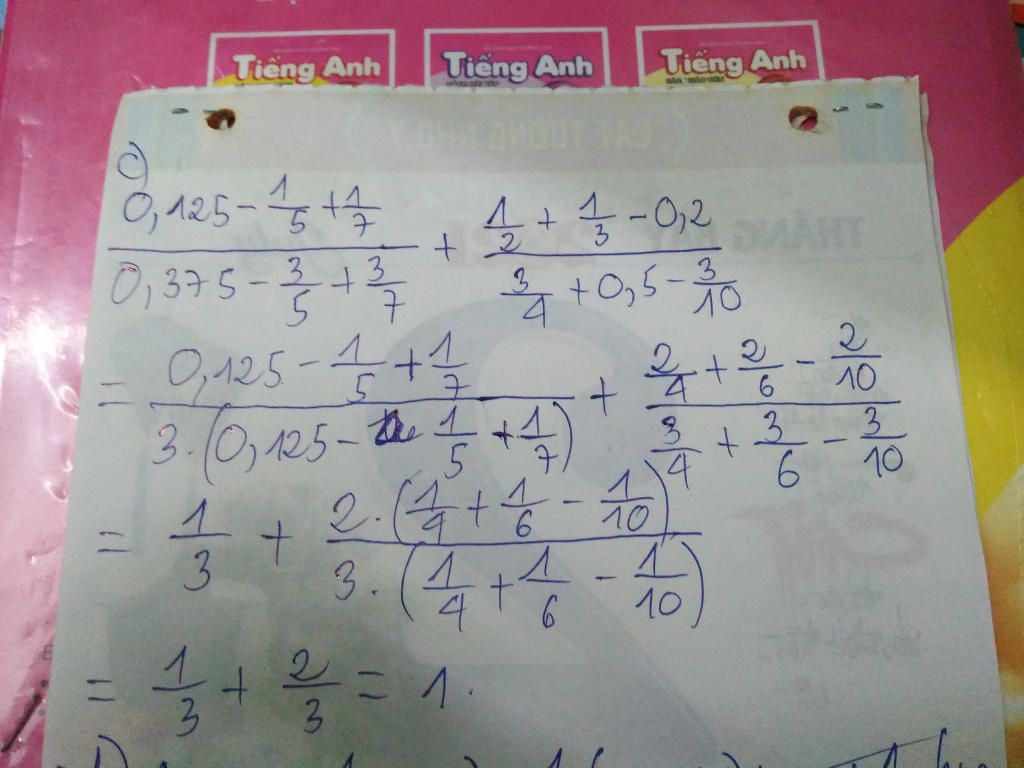 Tiếng Anh Tiếng Anh Tiếng Anh
c)
(0,125 - 1/5 + 1/7)/(0,375 - 3/5 + 3/7) + (1/2 + 1/3 - 0,2)/(3/4 + 0,5 - 3/10)
= (0,125 - 1/5 + 1/7)/(3.(0,125 - 1/5 + 1/7)) + (2/4 + 2/6 - 2/10)/(3/4 + 3/6 - 3/10)
= 1/3 + (2.(1/4 + 1/6 - 1/10))/(3.(1/4 + 1/6 - 1/10))
= 1/3 + 2/3 = 1.